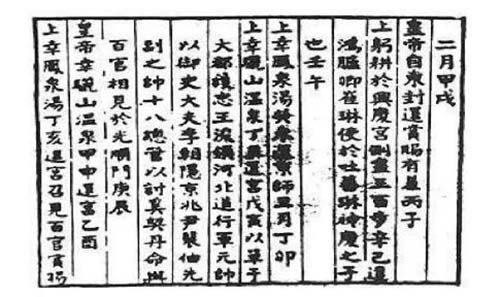 二月甲戌
皇帝自東封還賞賜有差丙子
上躬耕於興慶宮側盡三百步辛已還
鴻臚卿崔琳使於吐蕃琳神慶之子
也壬午
上幸鳳泉湯還京師丑月丁卯
上幸驪山溫泉丁還宮戊寅以單于
大都護忠王浚領河北道行軍元帥
以御史大夫李朝隱京兆尹裴伷先
副之帥十八總管以討奚契丹命與
百官相見於光順門庚辰
皇帝幸驪山溫泉甲申還宮乙酉
上幸鳳泉湯丁亥還宮召見百官賞賜